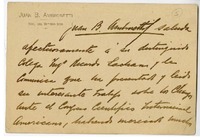 JUAN B. AMBROSETTI
Juan B. Ambrosetti saluda
afectuosamente á su distinguido
Colega Ingº Ricardo
Comunica que ha presentado y leido
su interesante Trabajo sobre los
ante el Congreso Científico Internacional
Americano, habiendo merecido